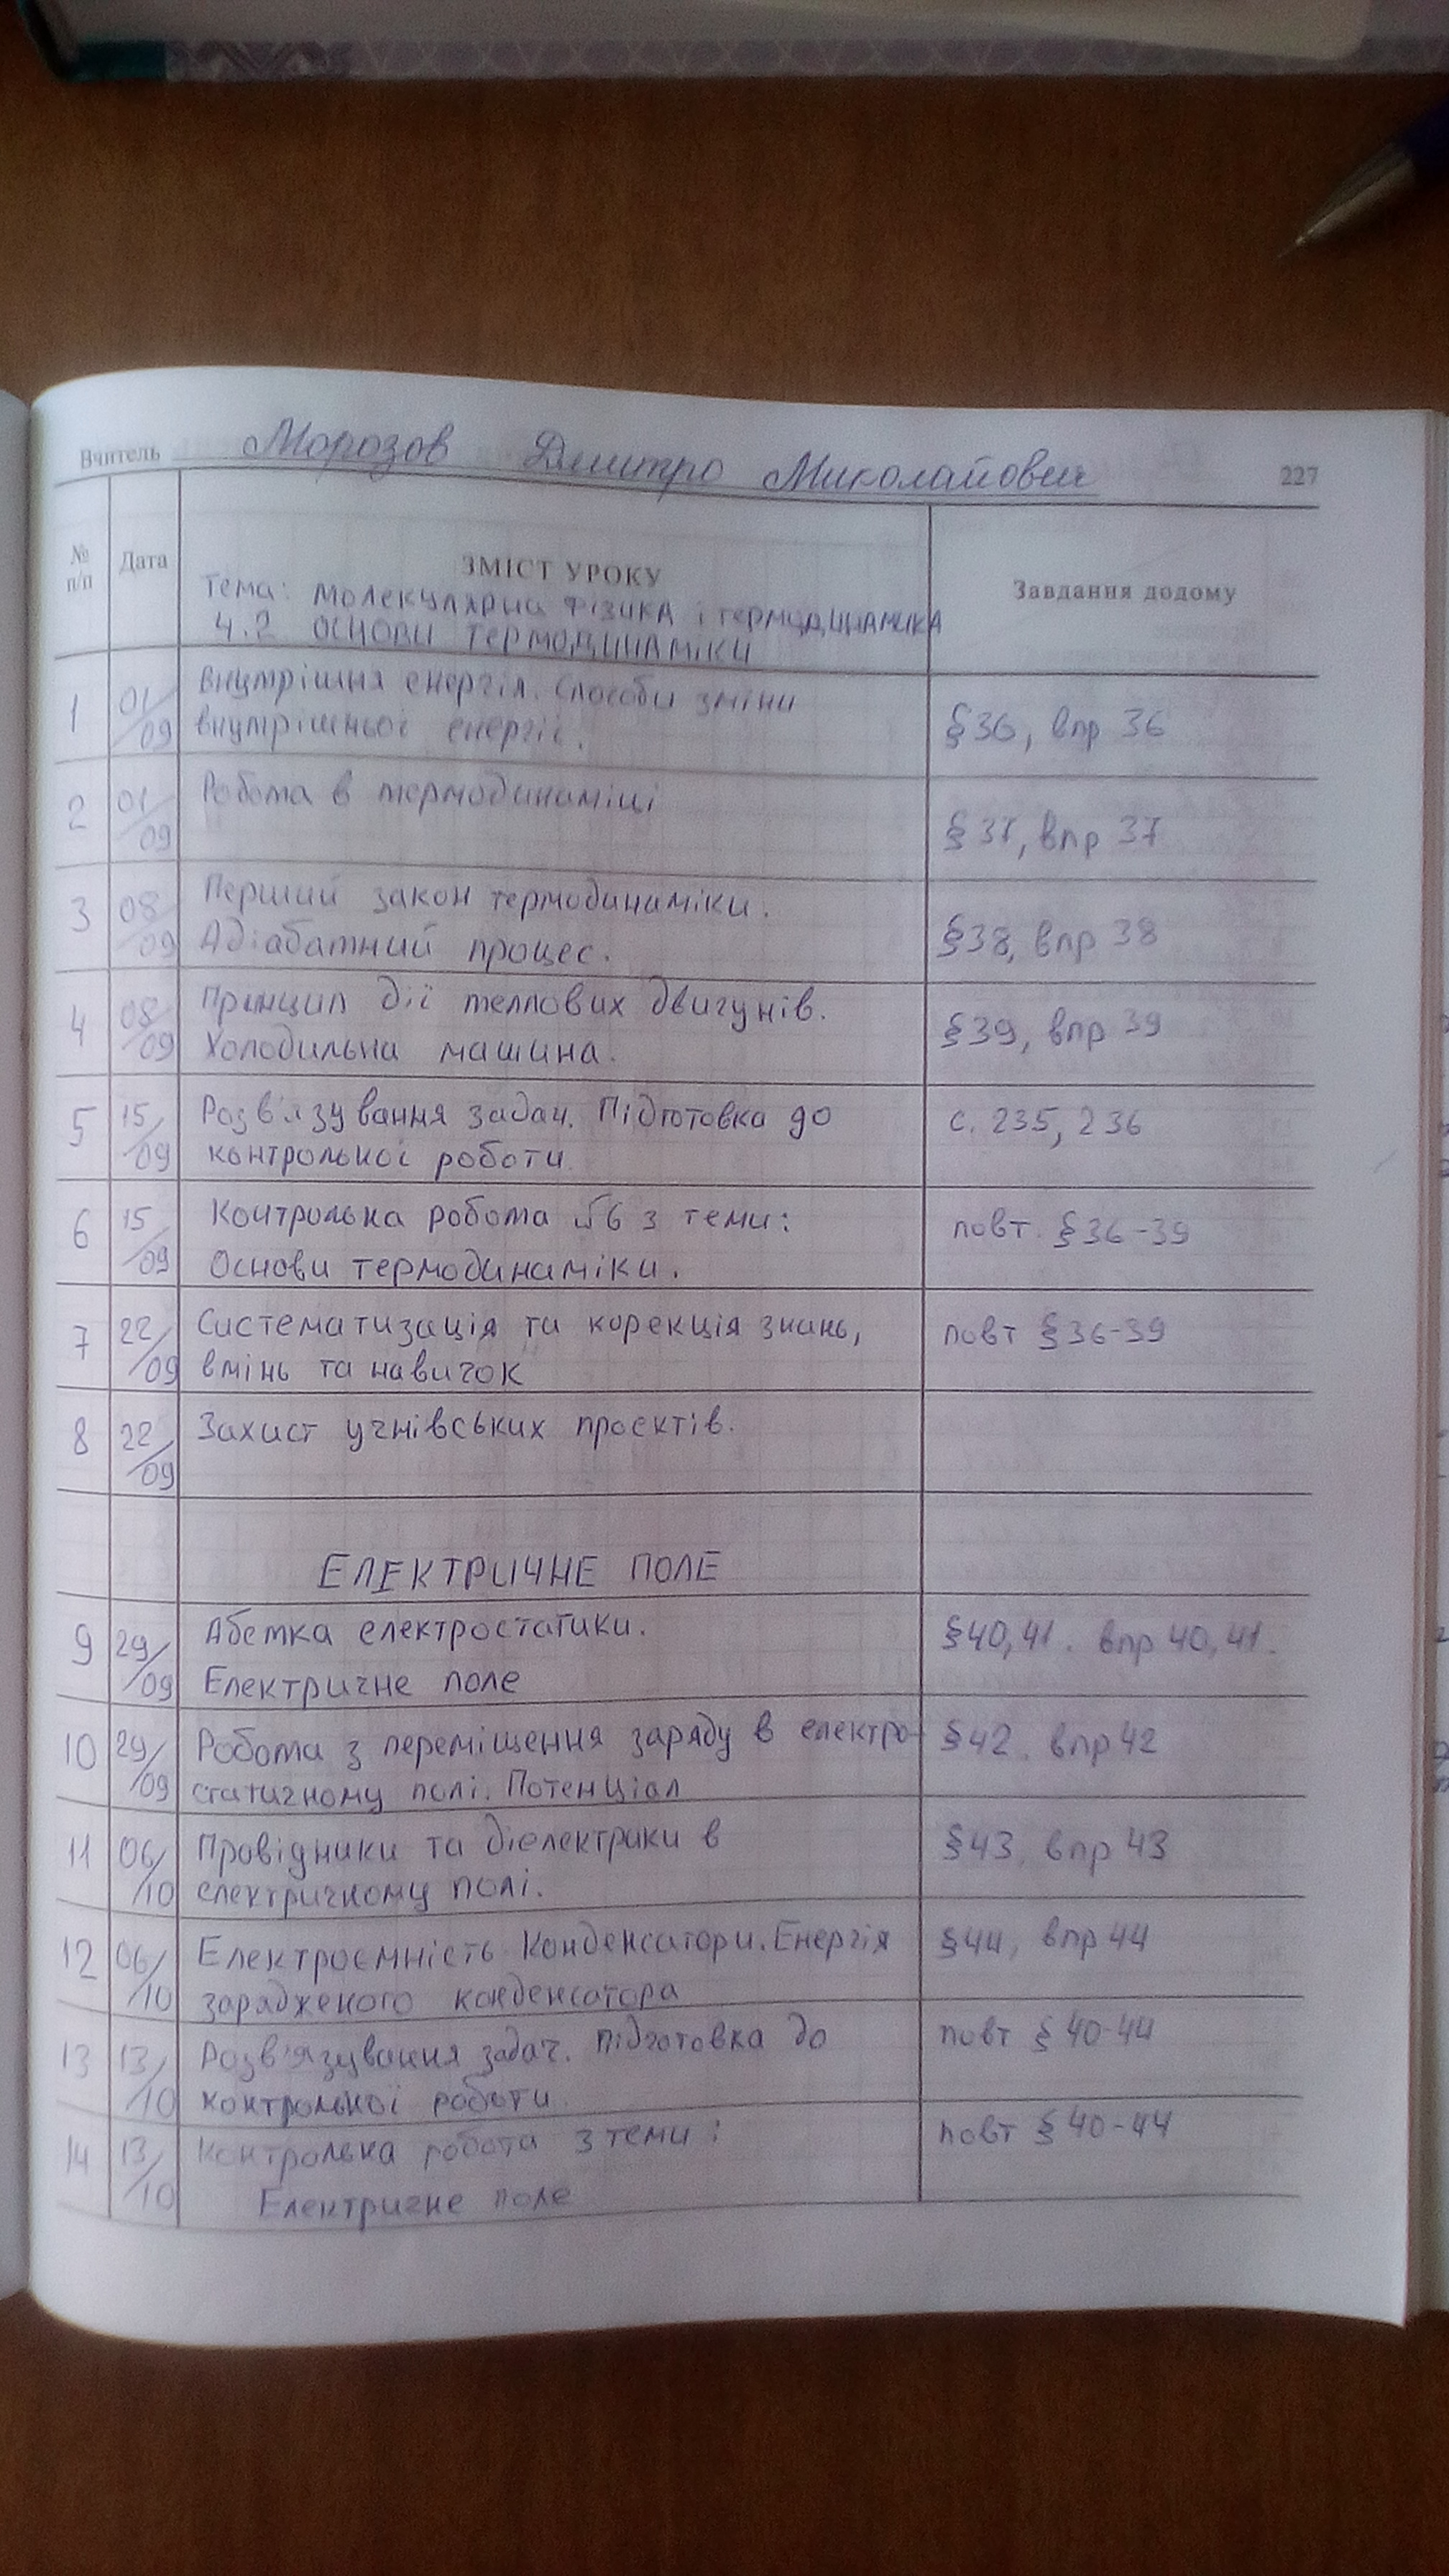 Вчитель Морозов Дмитро Миколайович 227
№ п/п Дата ЗМІСТ УРОКУ Завдання додому
Тема: Молекулярна фізика і термодинаміка
4.2 Основи термодинаміки
1 01/09 Внутрішня енергія. Способи зміни
внутрішньої енергії. §36, впр 36
2 01/09 Робота в термодинаміці §37, впр 37
3 08/09 Перший закон термодинаміки.
Адіабатний процес. §38, впр 38
4 08/09 Принцип дії теплових двигунів.
Холодильна машина. §39, впр 39
5 15/09 Розв'язування задач. Підготовка до с. 235, 236
контрольної роботи
6 15/09 Контрольна робота №6 з теми: повт. §36-39
Основи термодинаміки.
7 22/09 Систематизація та корекція знань, повт §36-39
вмінь та навичок
8 22/09 Захист учнівських проєктів.
ЕЛЕКТРИЧНЕ ПОЛЕ
9 29/09 Абетка електростатики. §40,41. впр 40,41.
Електричне поле
10 29/09 Робота з переміщення заряду в електро- §42. впр 42
статичному полі. Потенціал
11 06/10 Провідники та діелектрики в §43, впр 43
електричному полі.
12 06/10 Електроємність. Конденсатори. Енергія §44, впр 44
зарядженого конденсатора
13 13/10 Розв'язування задач. Підготовка до повт § 40-44
контрольної роботи.
14 13/10 Контрольна робота з теми: повт § 40-44
Електричне поле